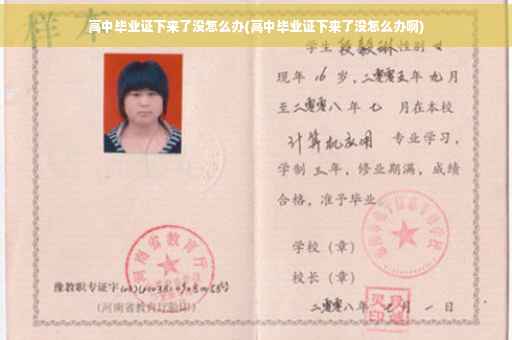 样本
高中毕业证下来了没怎么办(高中毕业证下来了没怎么办啊)
学生段毅琳性别女
现年16岁，二零零五年九月
至二零零八年七月在本校
计算机应用 专业学习，
学制三年，修业期满，成绩
合格，准予毕业。
学校（章）
校长（章）
二零零八年 月一日
河南省教育厅
豫教职专证字
(河南省教育厅验印)